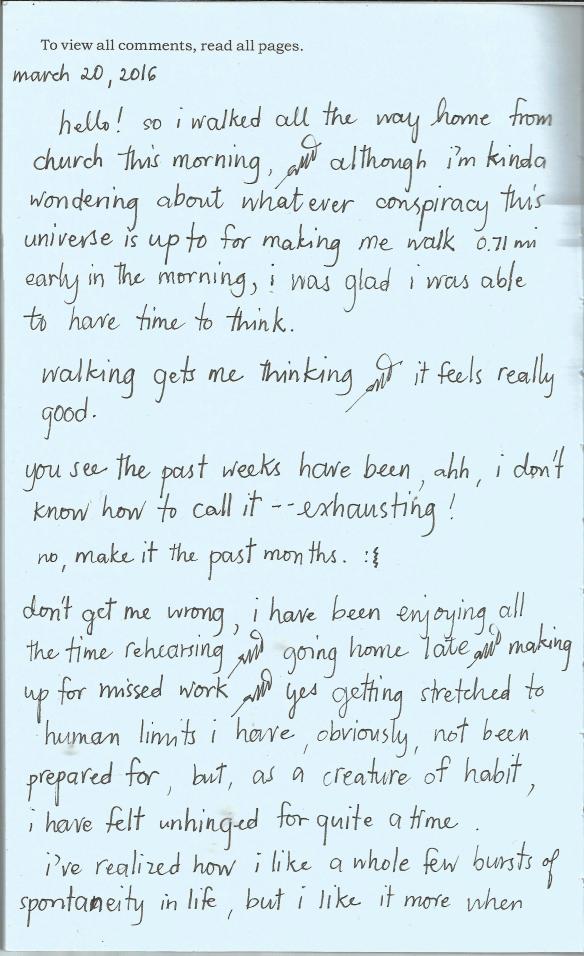 To view all comments, read all pages.
march 20, 2016
hello! so i walked all the way home from
church this morning, and although i'm kinda
wondering about whatever conspiracy this
universe is up to for making me walk 0.71 mi
early in the morning, i was glad i was able
to have time to think.
walking gets me thinking and it feels really
good.
you see the past weeks have been, ahh, i don't
know how to call it -- exhausting!
no, make it the past months. :{
don't get me wrong, i have been enjoying all
the time rehearsing and going home late and making
up for missed work and yes getting stretched to
human limits i have, obviously, not been
prepared for, but, as a creature of habit,
i have felt unhinged for quite a time.
i've realized how i like a whole few bursts of
spontaneity in life, but i like it more when